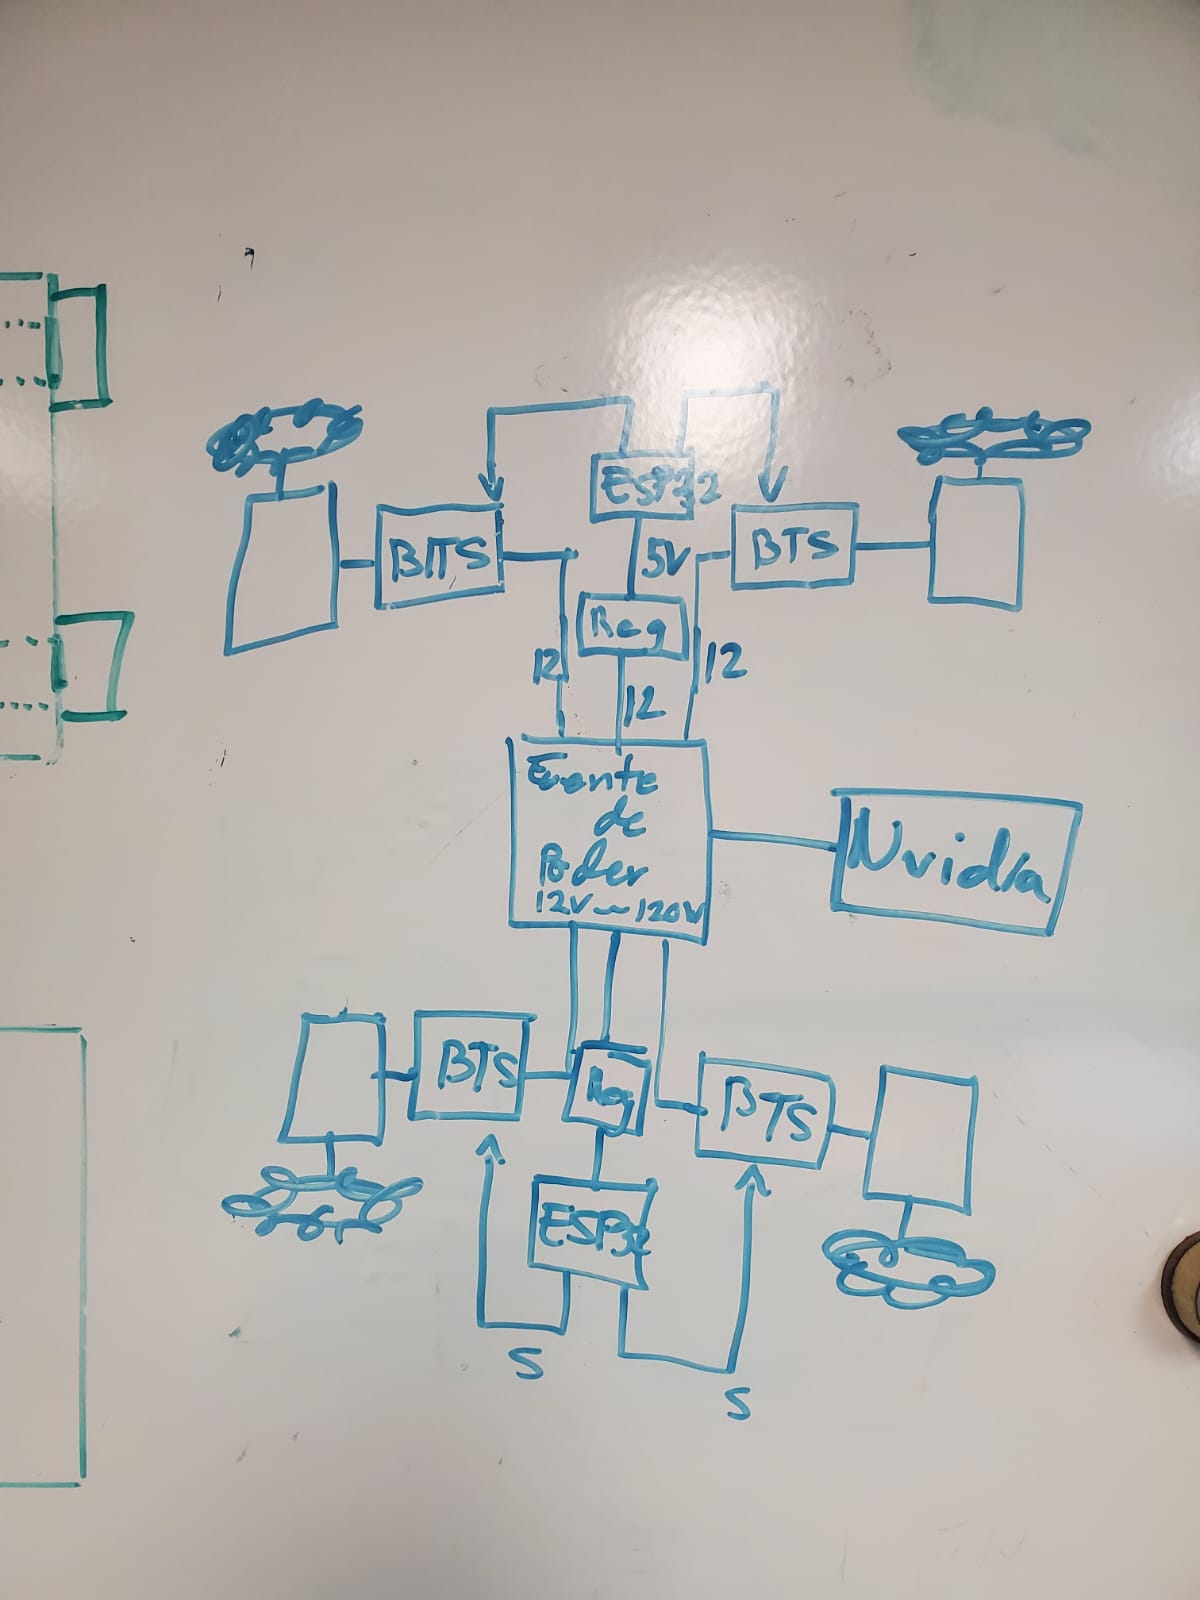 ESP32
BTS
5V
BTS
Reg
12
12
12
Fuente
de
Poder
12V ~ 120W
Nvidia
BTS
Reg
BTS
ESP32
S
S